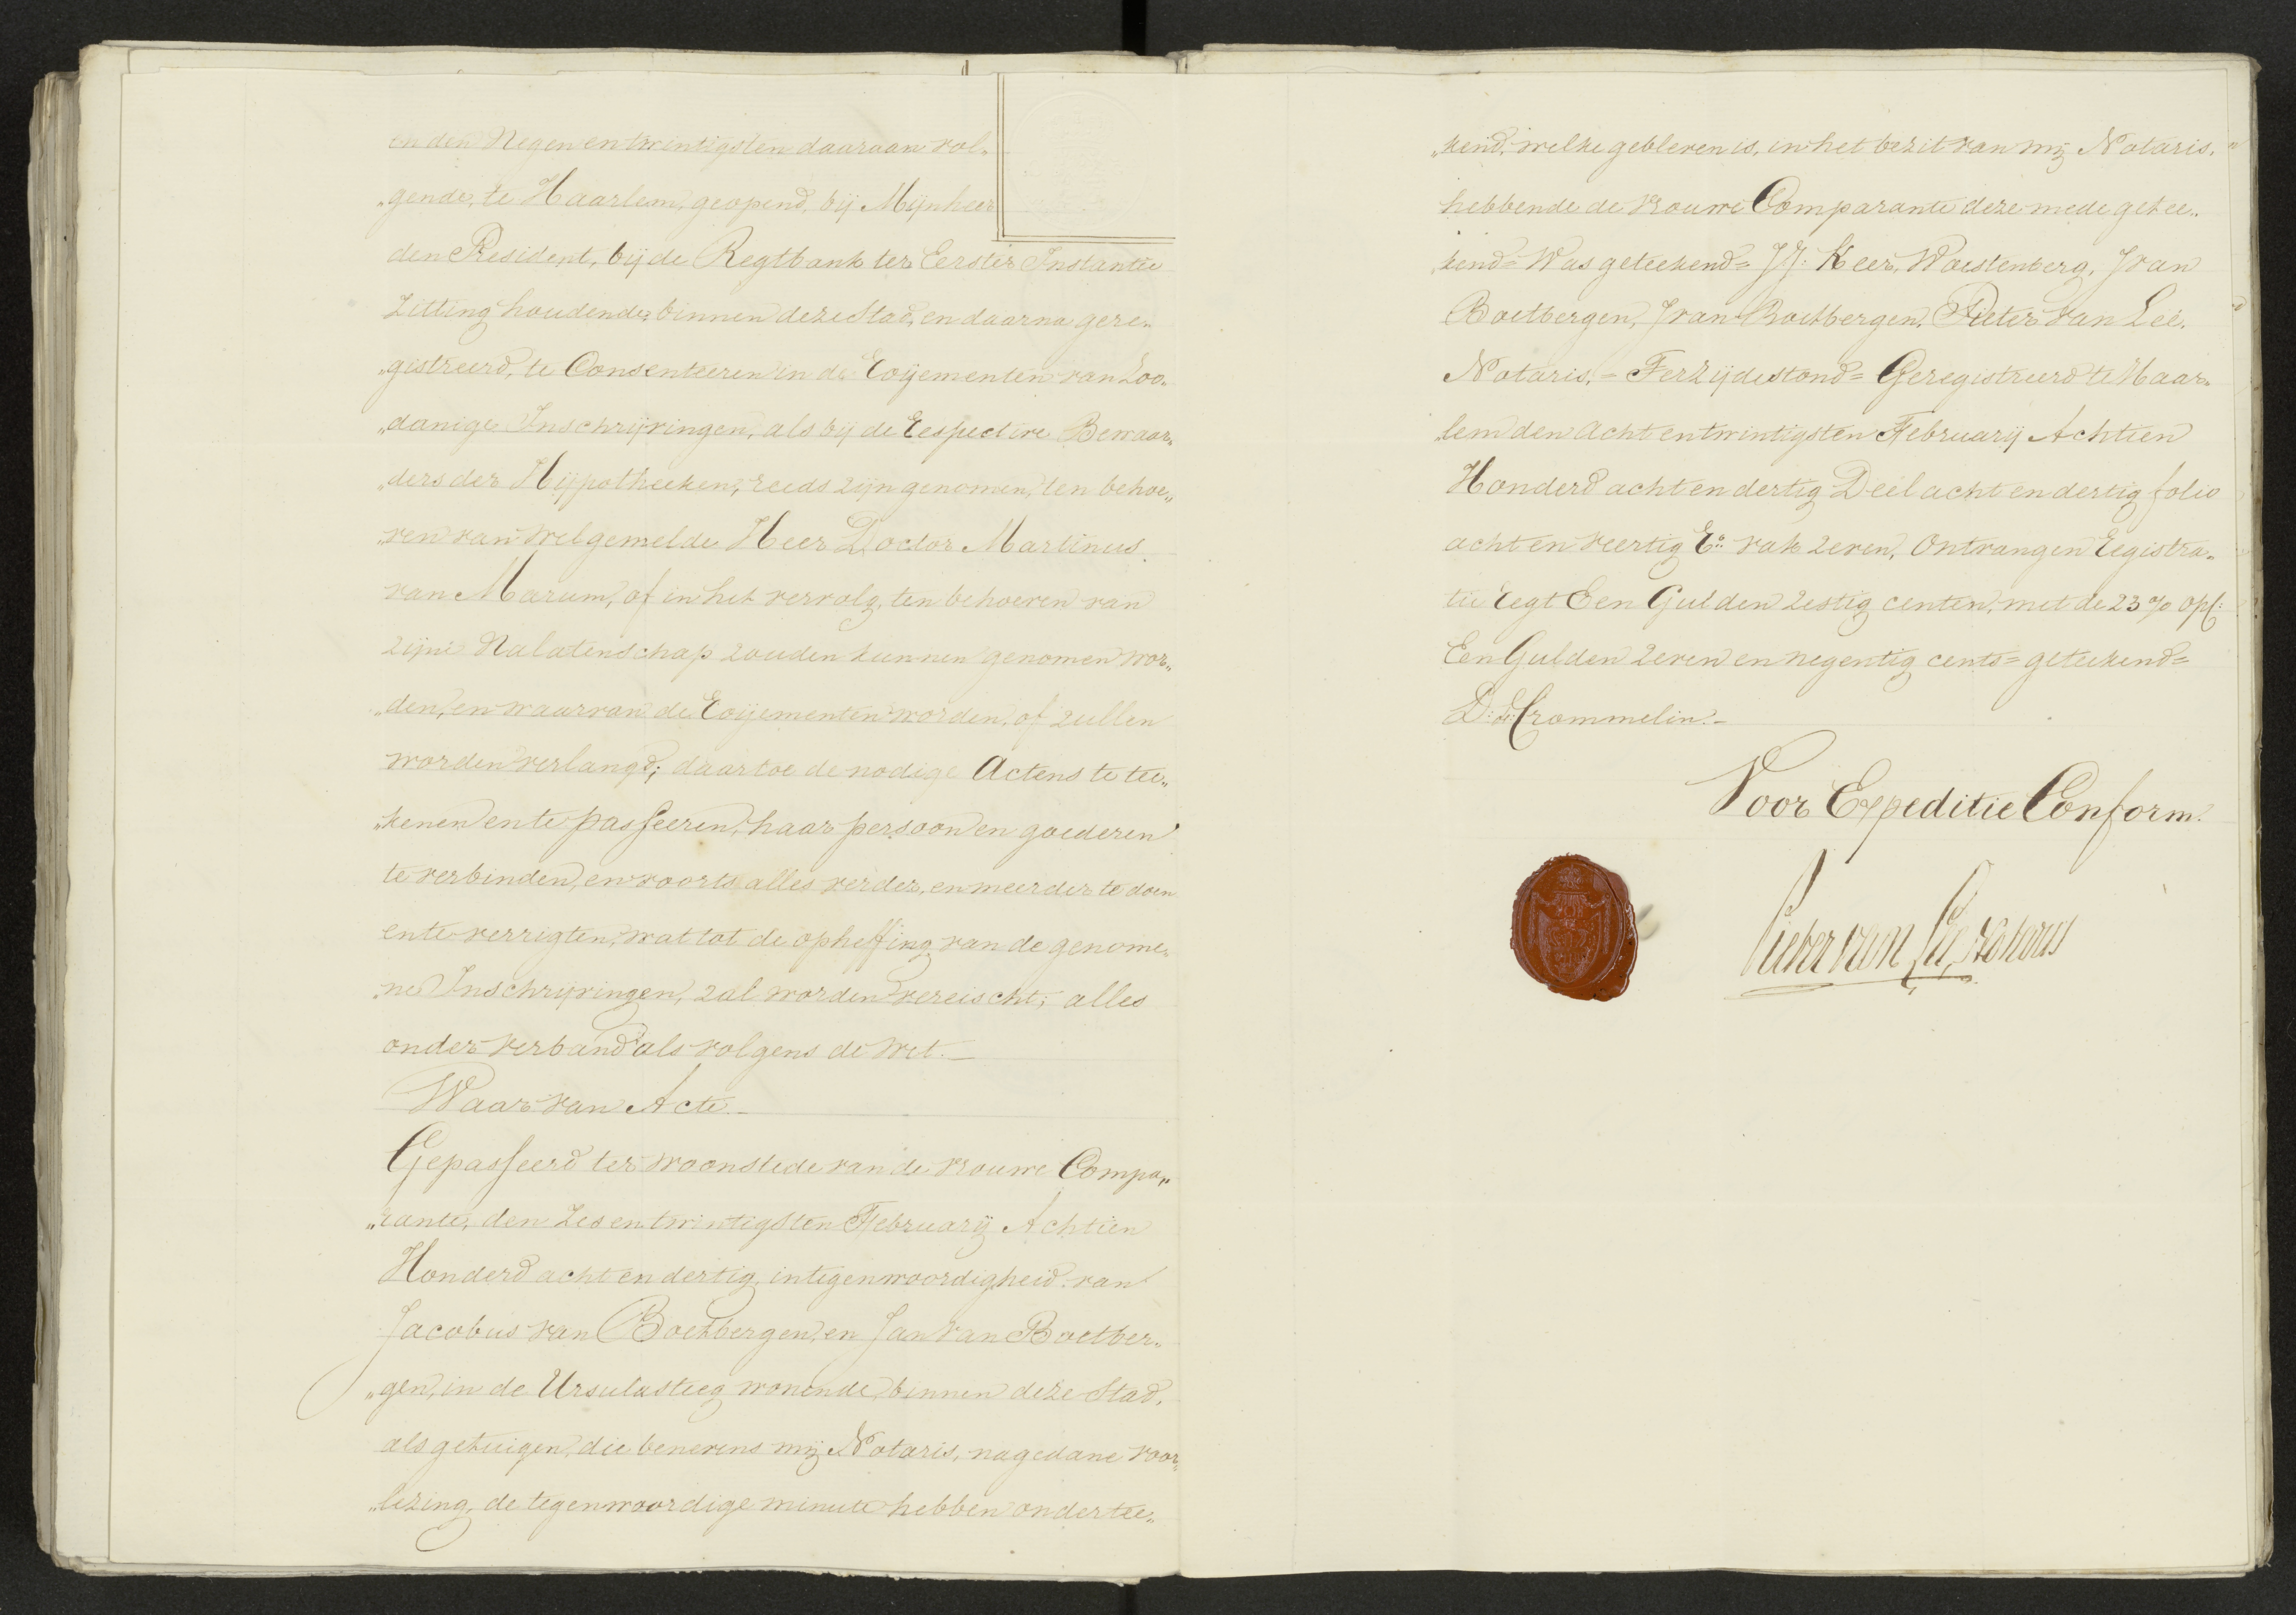 en den Negen en twintigsten daaraan vol„
„gende, te Haarlem, geopend, bij Mijnheer
den President, bij de Regtbank ter Eerster Instantie
Zitting houdende, binnen deze Stad, en daarna gere„
„gistreerd, te Consenteeren in de Roijementen van Zoo„
„danige Inschrijvingen, als bij de Respective Bewaar„
„ders der Hijpotheeken, reeds zijn genomen, ten behoe„
„ven van welgemelde Heer Doctor Martinus
van Marum, of in het vervolg, ten behoeven van
zijne Nalatenschap zouden kunnen genomen wor„
„den, en waarvan de Roijementen worden, of zullen
worden verlangd; daartoe de nodige Actens te tee„
„kenen en te passeeren, haar persoon en goederen
te verbinden, en voorts alles verder, en meerder te doen
en te verrigten, wat tot de opheffing van de genome„
„ne Inschrijvingen, zal worden vereischt; alles
onder verband als volgens de wet.
Waarvan Acte.
Gepasseerd ter woonstede van de vrouwe Compa„
„rante, den Zes en twintigsten February Achtien
Honderd acht en dertig, in tegenwoordigheid van
Jacobus van Boetbergen, en Jan van Boetber„
„gen, in de Ursulasteeg wonende, binnen deze Stad,
als getuigen, die benevens mij Notaris, na gedane voor„
„lezing, de tegenwoordige minute hebben ondertee„
„kend, welke gebleven is, in het bezit van mij Notaris,
hebbende de vrouwe Comparante deze mede getee„
„kend = Was geteekend = J J: Keer, Woestenberg, J van
Boetbergen, J van Boetbergen, Pieter van Leé,
Notaris, = Terzijde stond = Geregistreerd te Haar„
„lem den Acht en twintigsten February Achtien
Honderd acht en dertig Deel acht en dertig folio
acht en veertig Ro: vak zeven, Ontvangen Registra„
tie Regt Een Gulden zestig centen, met de 23% Opc:
Een Gulden zeven en negentig cents = geteekend =
D: d: Crommelin.
Voor Expeditie Conform.
Pieter van Leé, notaris